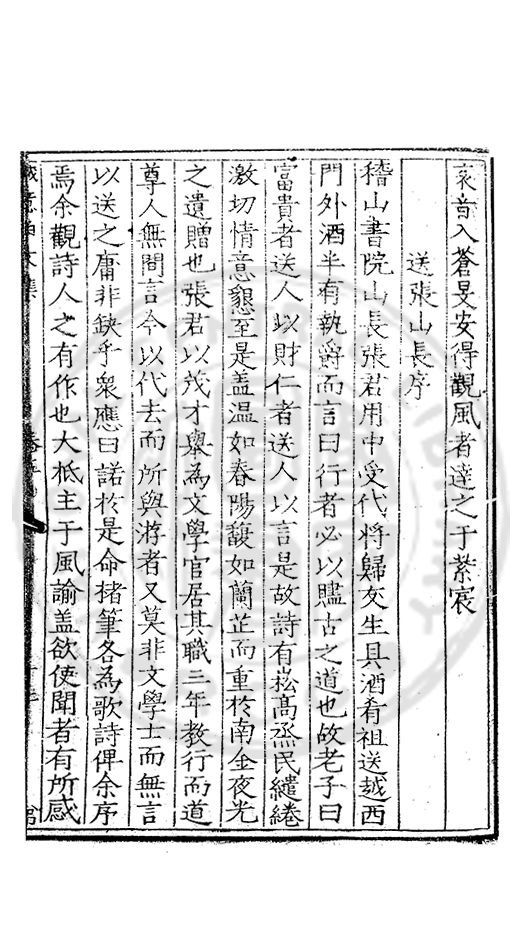 哀音入蒼旻安得觀風者達之于紫宸
送張山長序
稽山書院山長張君用中受代將歸友生具酒肴祖送越西
門外酒半有執爵而言曰行者必以贐古之道也故老子曰
富貴者送人以財仁者送人以言是故詩有崧高烝民繾綣
激切情意懇至是盖温如春陽馥如蘭芷而重於南金夜光
之遺贈也張君以茂才舉為文學官居其職三年教行而道
尊人無間言今以代去而所與游者又莫非文學士而無言
以送之庸非缺乎衆應曰諾於是命楮筆各為歌詩俾余序
焉余觀詩人之有作也大柢主于風諭盖欲使聞者有所感